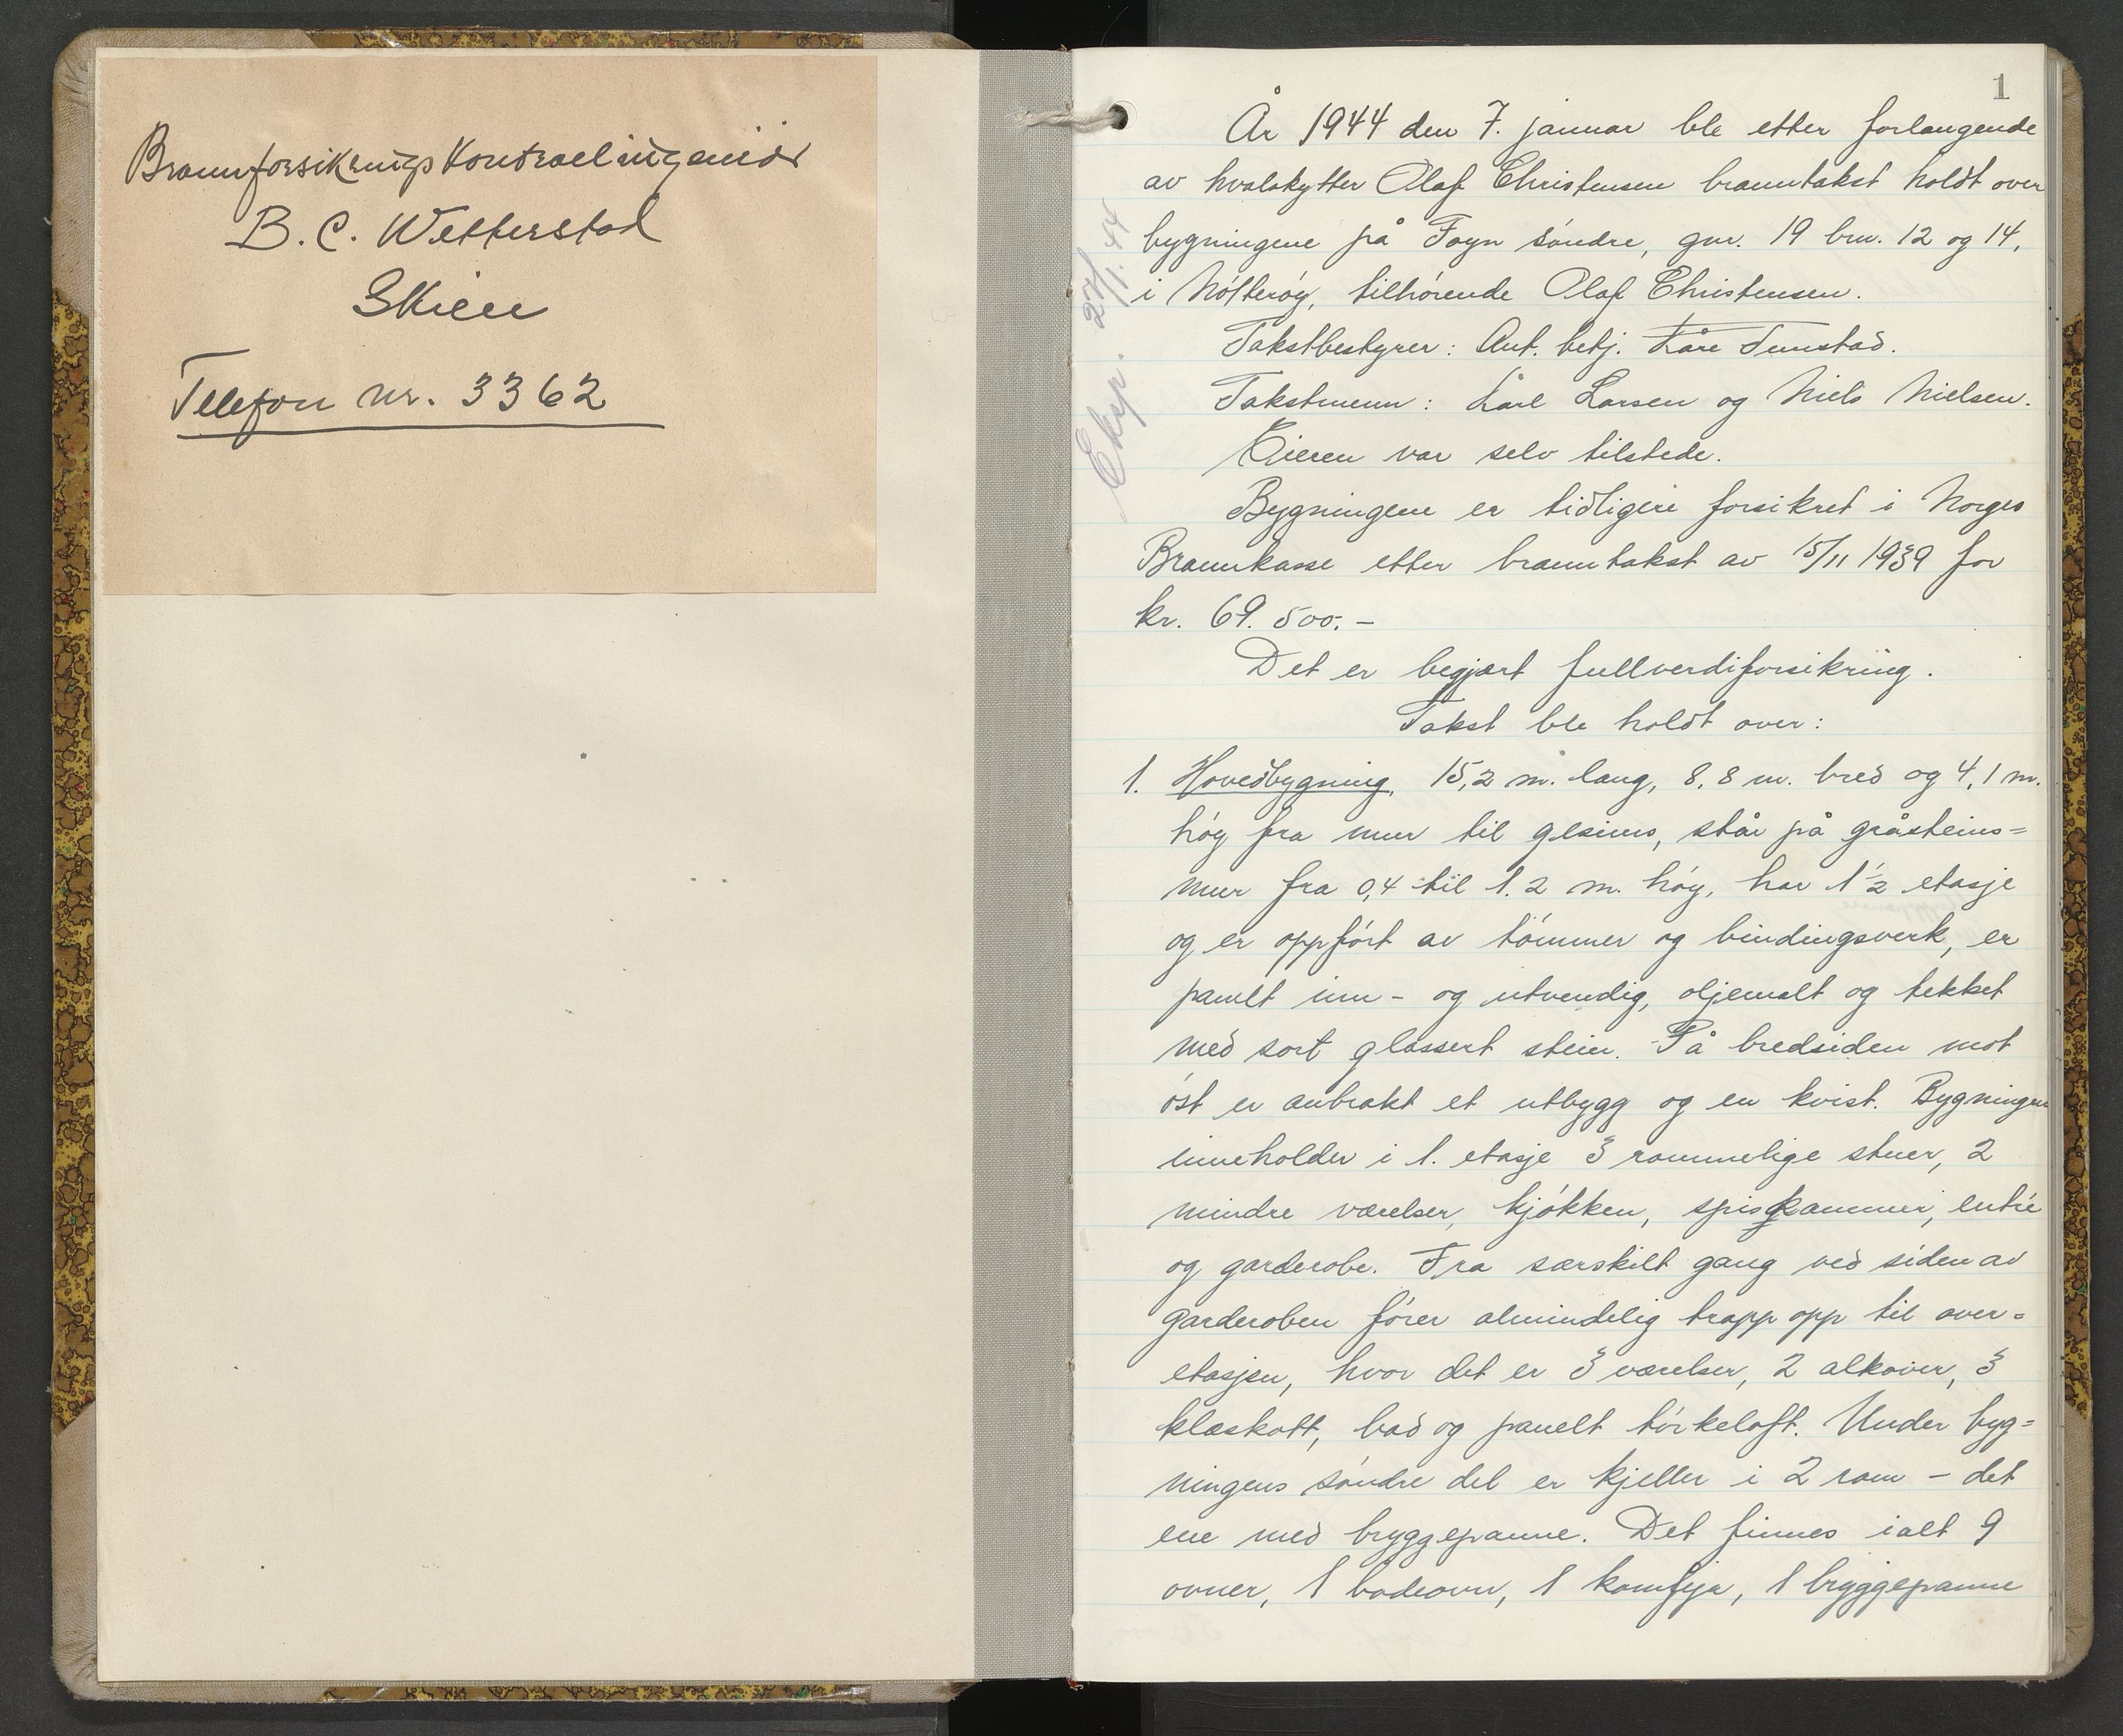 Brannforsikrings Kontrollingeniør
B. C. Wetterstad
Skien
Telefon nr. 3362
1
Eksp. 27/1. 44
År 1944 den 7. januar ble etter forlangende
av hvalskytter Olaf Christensen branntakst holdt over
bygningene på Foyn söndre, gnr. 19 brn. 12 og 14,
i Nötteröy, tilhörende Olaf Christensen.
Takstbestyrer: Aut. betj. Kåre Tunstad.
Takstmenn: Karl Larsen og Niels Nielsen.
Eieren var selv tilstede.
Bygningene er tidligere forsikret i Norges
Brannkasse etter branntakst av 15/11 1939 for
kr. 69.500.-
Det er begjært fullverdiforsikring.
Takst ble holdt over:
1. Hovedbygning, 15,2 m. lang, 8,8 m. bred og 4,1 m.
höy fra mur til gesims, står på gråsteins=
mur fra 0,4 til 1.2 m. höy, har 1 1/2 etasje
og er oppfört av tömmer og bindingsverk, er
panelt inn- og utvendig, oljemalt og tekket
med sort glassert stein. På bredsiden mot
öst er anbrakt et utbygg og en kvist. Bygningen
inneholder i 1. etasje 3 rommelige stuer, 2
mindre værelser, kjökken, spiskammer, entré
og garderobe. Fra særskilt gang ved siden av
garderoben förer almindelig trapp opp til over=
etasjen, hvor det er 3 værelser, 2 alkover, 3
klæskott, bad og panelt törkeloft. Under byg=
ningens söndre del er kjeller i 2 rom - det
ene med bryggepanne. Det finnes ialt 9
ovner, 1 badeovn, 1 komfyr, 1 bryggepanne